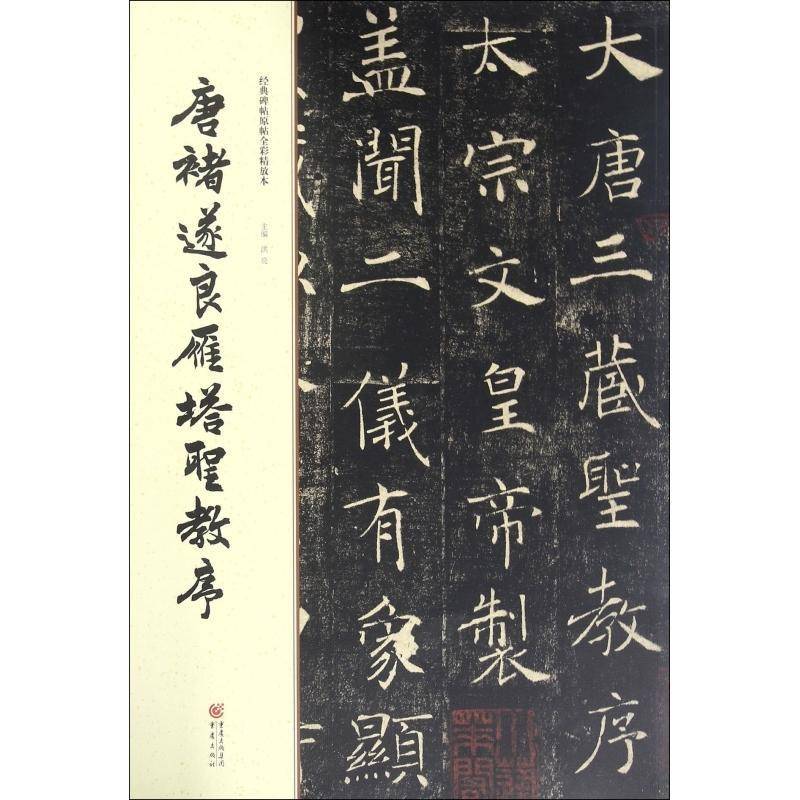 大唐三藏聖教序
太宗文皇帝製
盖聞二儀有象顯
经典碑帖原帖全彩精放本
主编 洪亮
唐褚遂良雁塔聖教序
重庆出版集团
重庆出版社